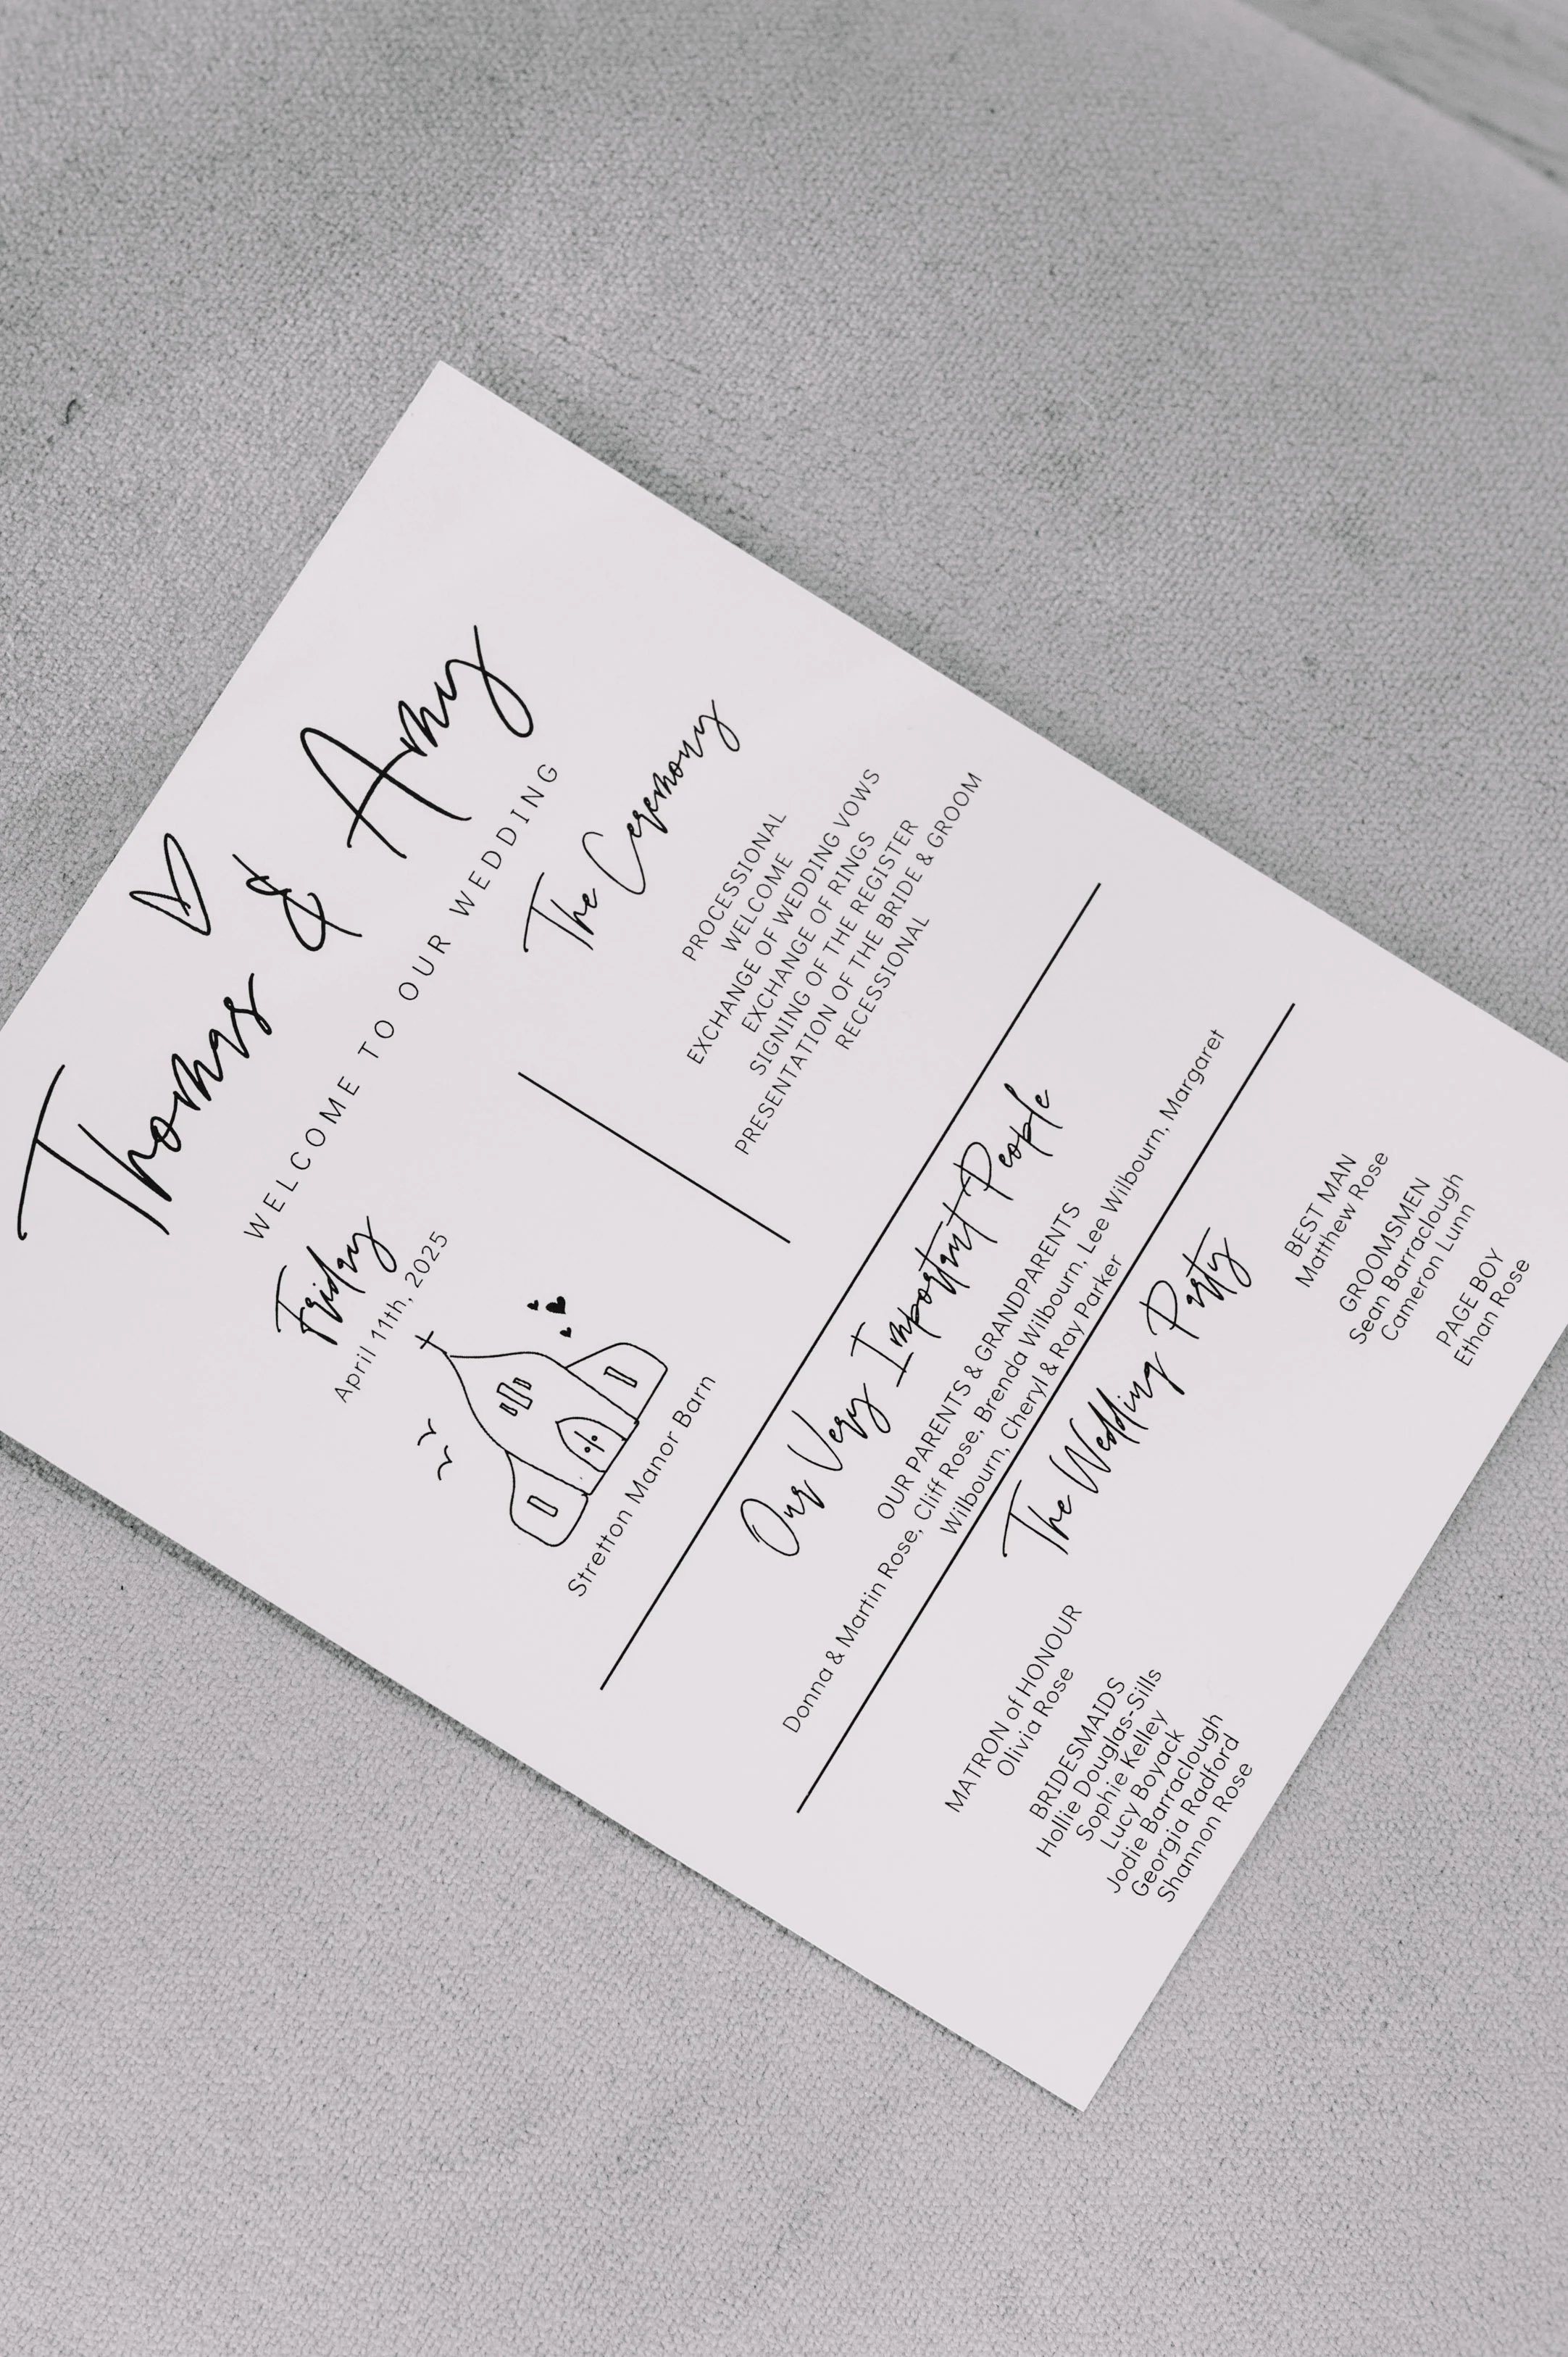 Thomas & Amy
WELCOME TO OUR WEDDING
Friday
April 11th, 2025
Stretton Manor Barn
The Ceremony
PROCESSIONAL
WELCOME
EXCHANGE OF WEDDING VOWS
EXCHANGE OF RINGS
SIGNING OF THE REGISTER
PRESENTATION OF THE BRIDE & GROOM
RECESSIONAL
Our Very Important People
OUR PARENTS & GRANDPARENTS
Donna & Martin Rose, Cliff Rose, Brenda Wilbourn, Lee Wilbourn, Margaret
Wilbourn, Cheryl & Ray Parker
The Wedding Party
MATRON of HONOUR
Olivia Rose
BRIDESMAIDS
Hollie Douglas-Sills
Sophie Kelley
Lucy Boyack
Jodie Barraclough
Georgia Radford
Shannon Rose
BEST MAN
Matthew Rose
GROOMSMEN
Sean Barraclough
Cameron Lunn
PAGE BOY
Ethan Rose